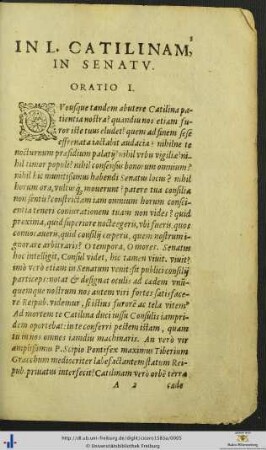 IN L. CATILINAM,
IN SENATV.
ORATIO I.
QVousque tandem abutere Catilina pa-
tientia nostra? quandiu nos etiam fu-
ror iste tuus eludet? quem ad finem sese
effrenata iactabit audacia? nihilne te
nocturnum præsidium palatij? nihil vrbis vigiliæ? ni-
hil timor populi? nihil consensus bonorum omnium?
nihil hic munitissimus habendi Senatus locus? nihil
horum ora, vultusq́; mouerunt? patere tua consilia
non sentis? constrictam iam omnium horum conscien-
tia teneri coniurationem tuam non vides? quid
proxima, quid superiore nocte egeris, vbi fueris, quos
conuocaueris, quid consilij ceperis, quem nostrum i-
gnorare arbitraris? O tempora, O mores. Senatus
hoc intelligit, Consul videt, hic tamen viuit. viuit?
imò verò etiam in Senatum venit: fit publici consilij
particeps: notat & designat oculis ad cædem vnū-
quemque nostrum nos autem viri fortes satisface-
re Reipub. videmur, si istius furorē ac tela vitem9
Ad mortem te Catilina duci iussu Consulis iampri-
dem oportebat: in te conferri pestem istam, quam
tu in nos omnes iamdiu machinaris. An verò vir
amplissimus P. Scipio Pontifex maximus Tiberium
Gracchum mediocriter labefactantem statum Rei-
pub. priuatus interfecit? Catilinam verò orbē terræ
A 2 cæde
Universitätsbibliothek Freiburg